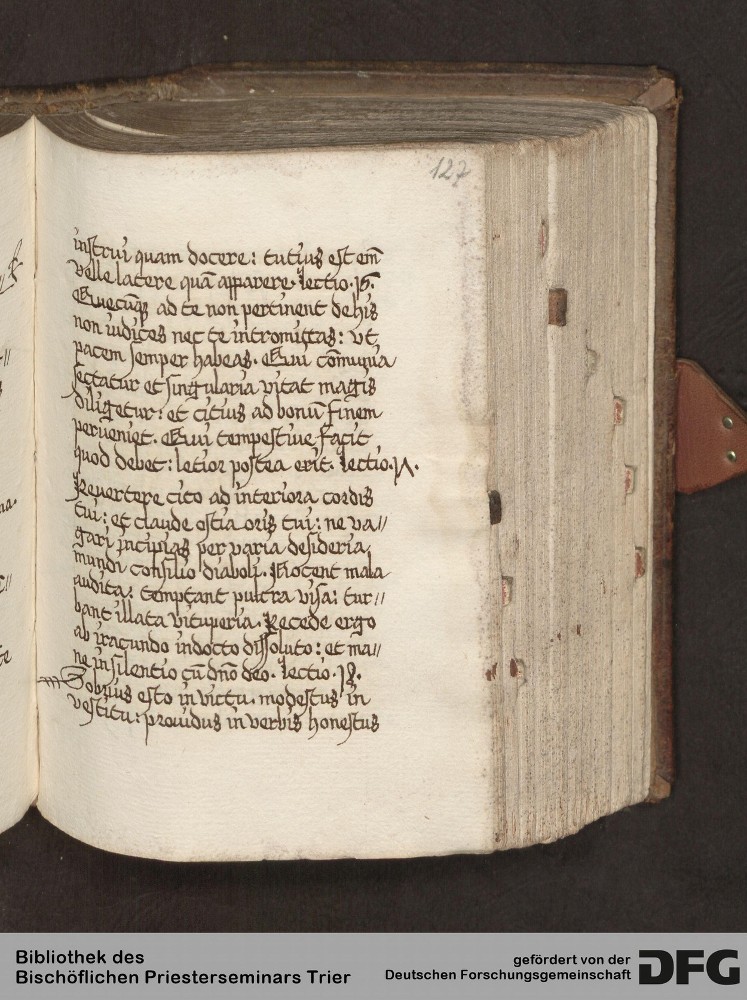 127
instrui quam docere: tutius est em̅
velle latere quā apparere. Lectio .16.
Quecūqꝫ ad te non pertinent de his
non iudices nec te intromittas: vt
pacem semper habeas. Qui cōmunia
sectatur et singularia vitat magis
diligetur: et citius ad bonū finem
perveniet. Qui tempestive facit
quod debet: letior postea erit. Lectio .17.
Revertere cito ad interiora cordis
tui: et claude ostia oris tui: ne va//
gari incipias per varia desideria
mundi consilio diaboli. Nocent mala
audita: temptant pulcra visa: tur//
bant illata vituperia. Recede ergo
ab iracundo indocto dissoluto: et ma//
ne in silentio cū dn̄o deo. Lectio .18.
Sobrius esto in victu. modestus in
vestitu: providus in verbis honestus
Bibliothek des
Bischöflichen Priesterseminars Trier
gefördert von der
Deutschen Forschungsgemeinschaft
DFG